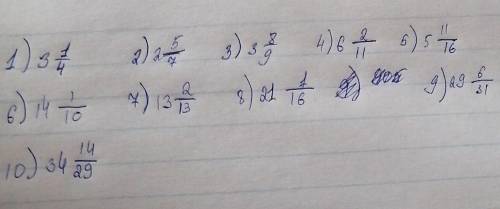 1) 3 1/4 2) 2 5/7 3) 3 8/9 4) 6 2/11 5) 5 11/16
6) 14 1/10 7) 13 2/13 8) 21 1/16 9) 29 6/31
10) 34 14/29